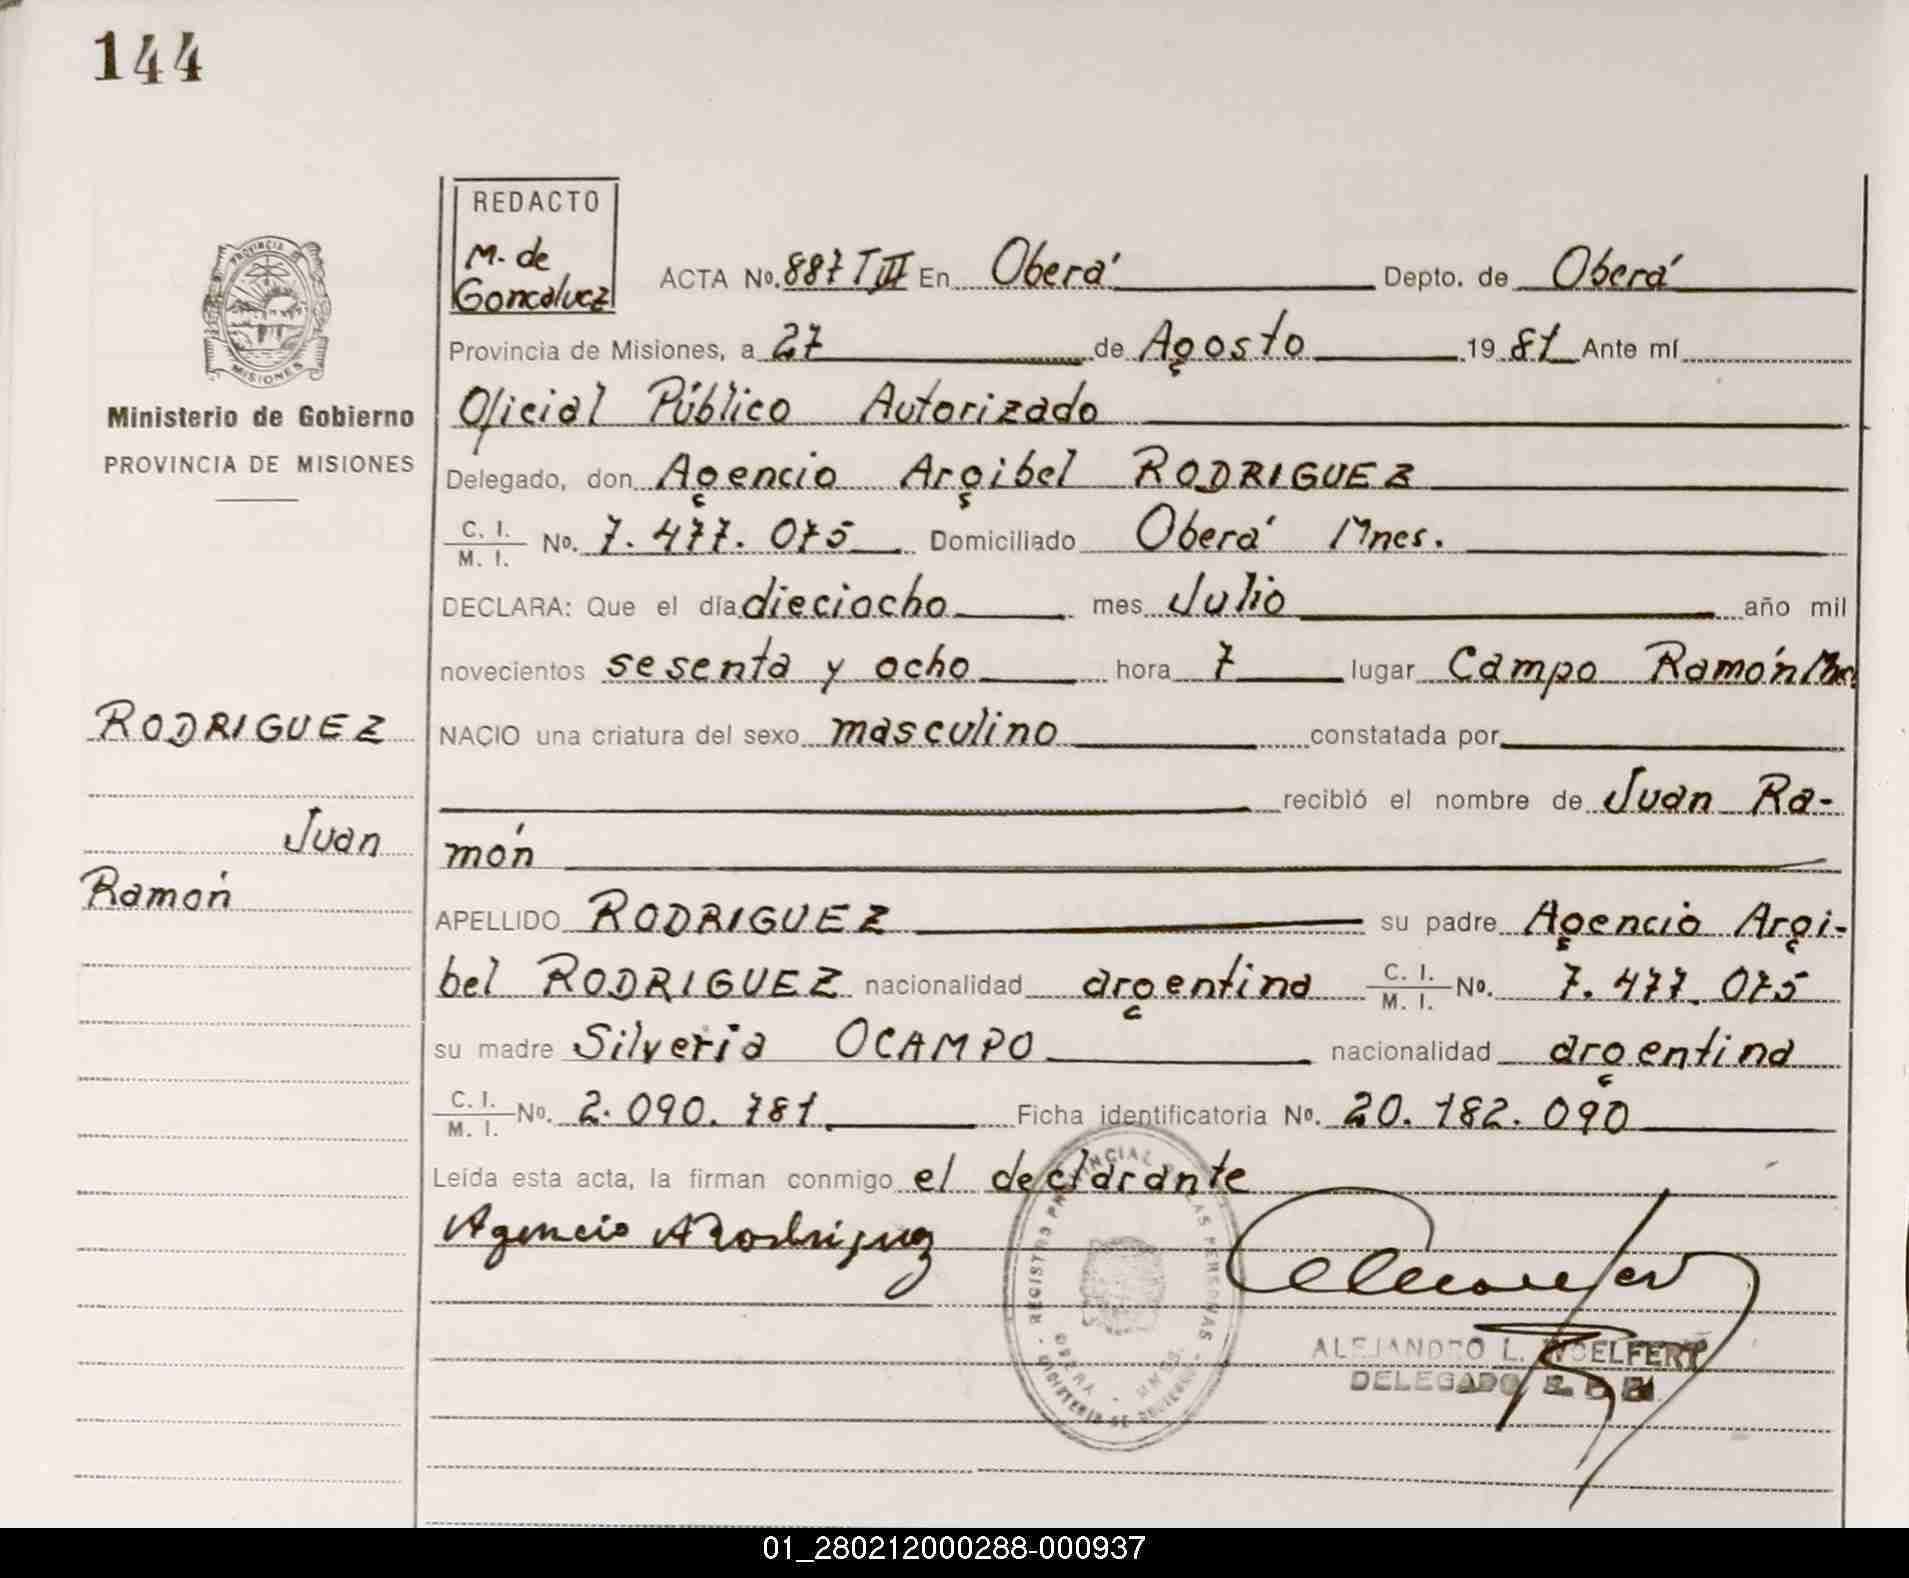 144
REDACTO
M. de
Goncalvez
PROVINCIA
MISIONES
Ministerio de Gobierno
PROVINCIA DE MISIONES
ACTA No. 887 T III En Oberá Depto. de Oberá
Provincia de Misiones, a 27 de Agosto 19 81 Ante mí
Oficial Público Autorizado
Delegado, don Agencio Argibel RODRIGUEZ
C. I.
M. I. No. 7.477.075 Domiciliado Oberá Mnes.
DECLARA: Que el día dieciocho mes Julio año mil
novecientos sesenta y ocho hora 7 lugar Campo Ramón Mnes.
RODRIGUEZ
NACIO una criatura del sexo masculino constatada por
recibió el nombre de Juan Ra-
Juan
món
Ramón
APELLIDO RODRIGUEZ su padre Agencio Argi-
bel RODRIGUEZ nacionalidad argentina C. I.
M. I. No. 7.477.075
su madre Silveria OCAMPO nacionalidad argentina
C. I.
M. I. No. 2.090.781 Ficha identificatoria No. 20.182.090
Leída esta acta, la firman conmigo el declarante
Agencio A Rodriguez
REGISTRO PROVINCIAL DE LAS PERSONAS
OBERA - MNES.
MINISTERIO DE GOBIERNO
ALEJANDRO L. WOELFERT
DELEGADO
01_280212000288-000937